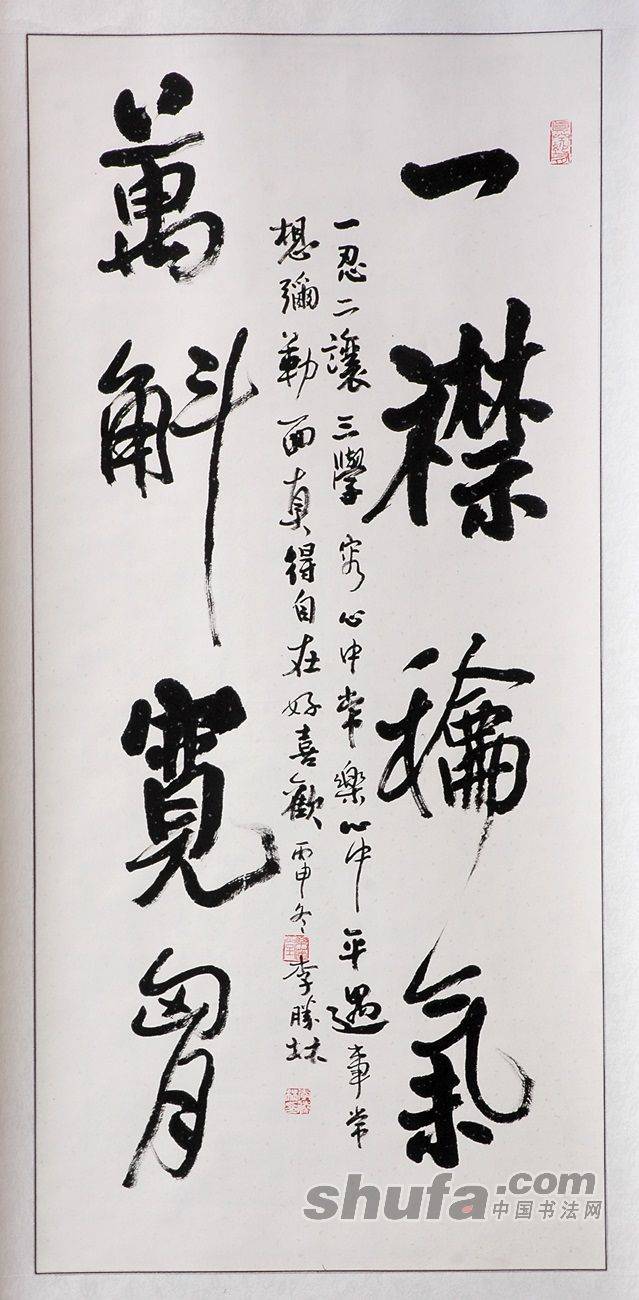 一襟龢氣
一忍二讓三學容心中常樂心中平遇事常
想彌勒面真得自在好喜歡丙申冬李勝
萬斛寬胷
shufa.com
中国书法网